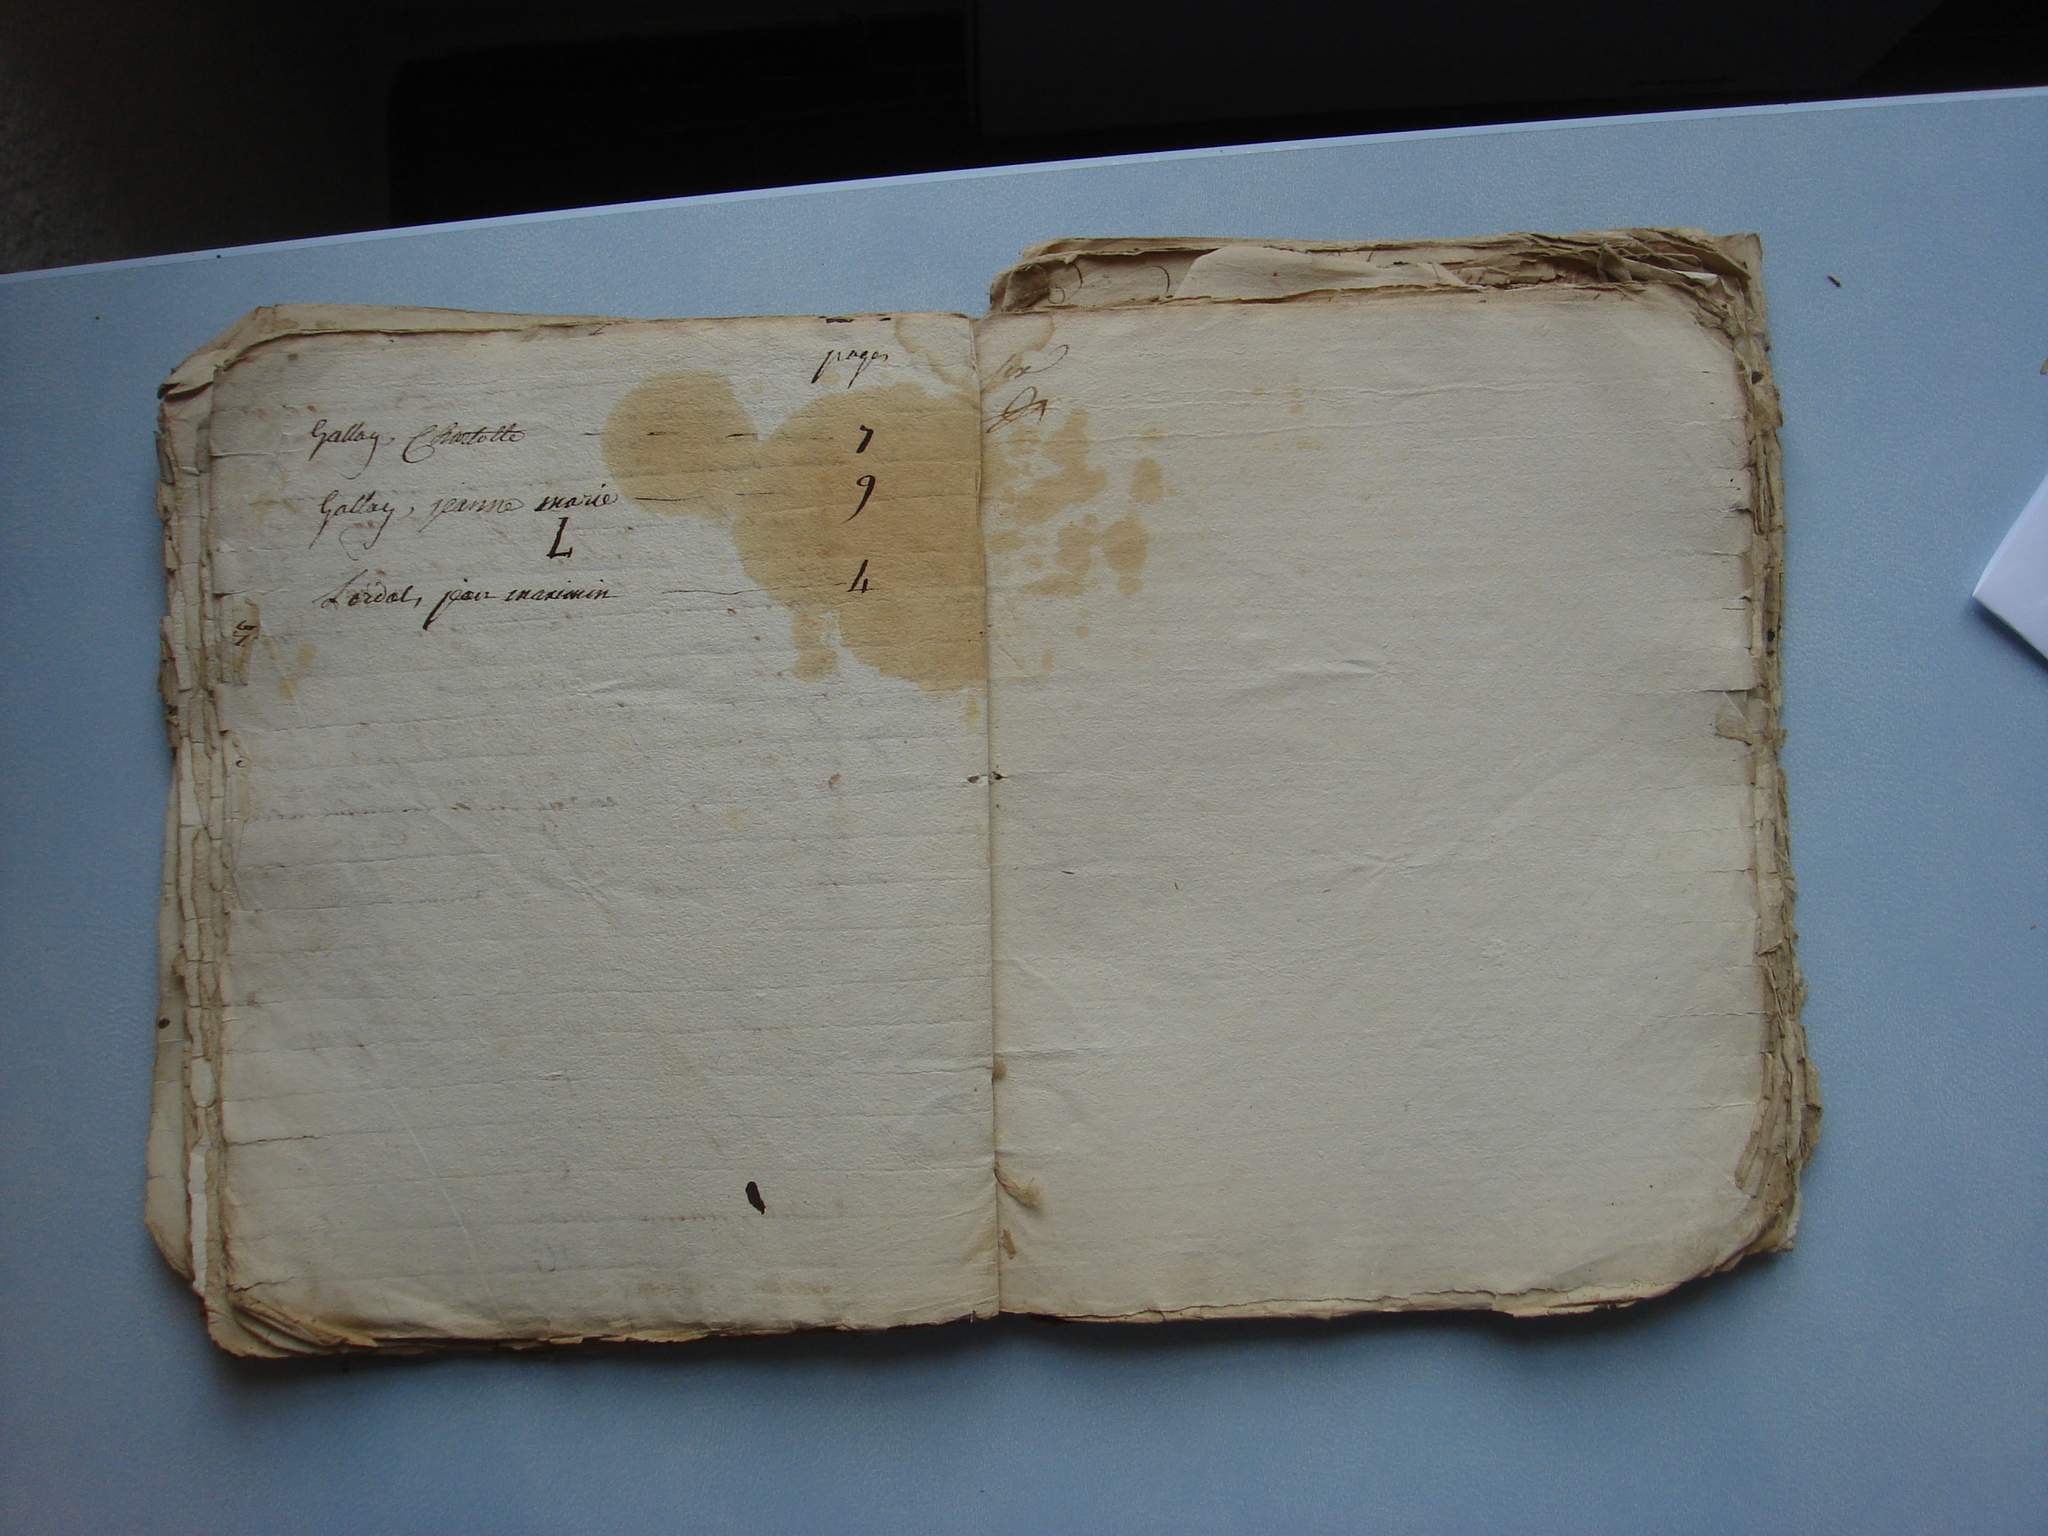 pages
Gallay, Charlotte 7
Gallay, jeanne marie 9
L
Lordol, jean maximin 4
six